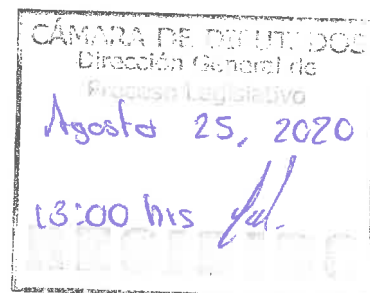 CÁMARA DE DIPUTADOS
Dirección General de
Proceso Legislativo
Agosto 25, 2020
13:00 hrs
RECIBIDO